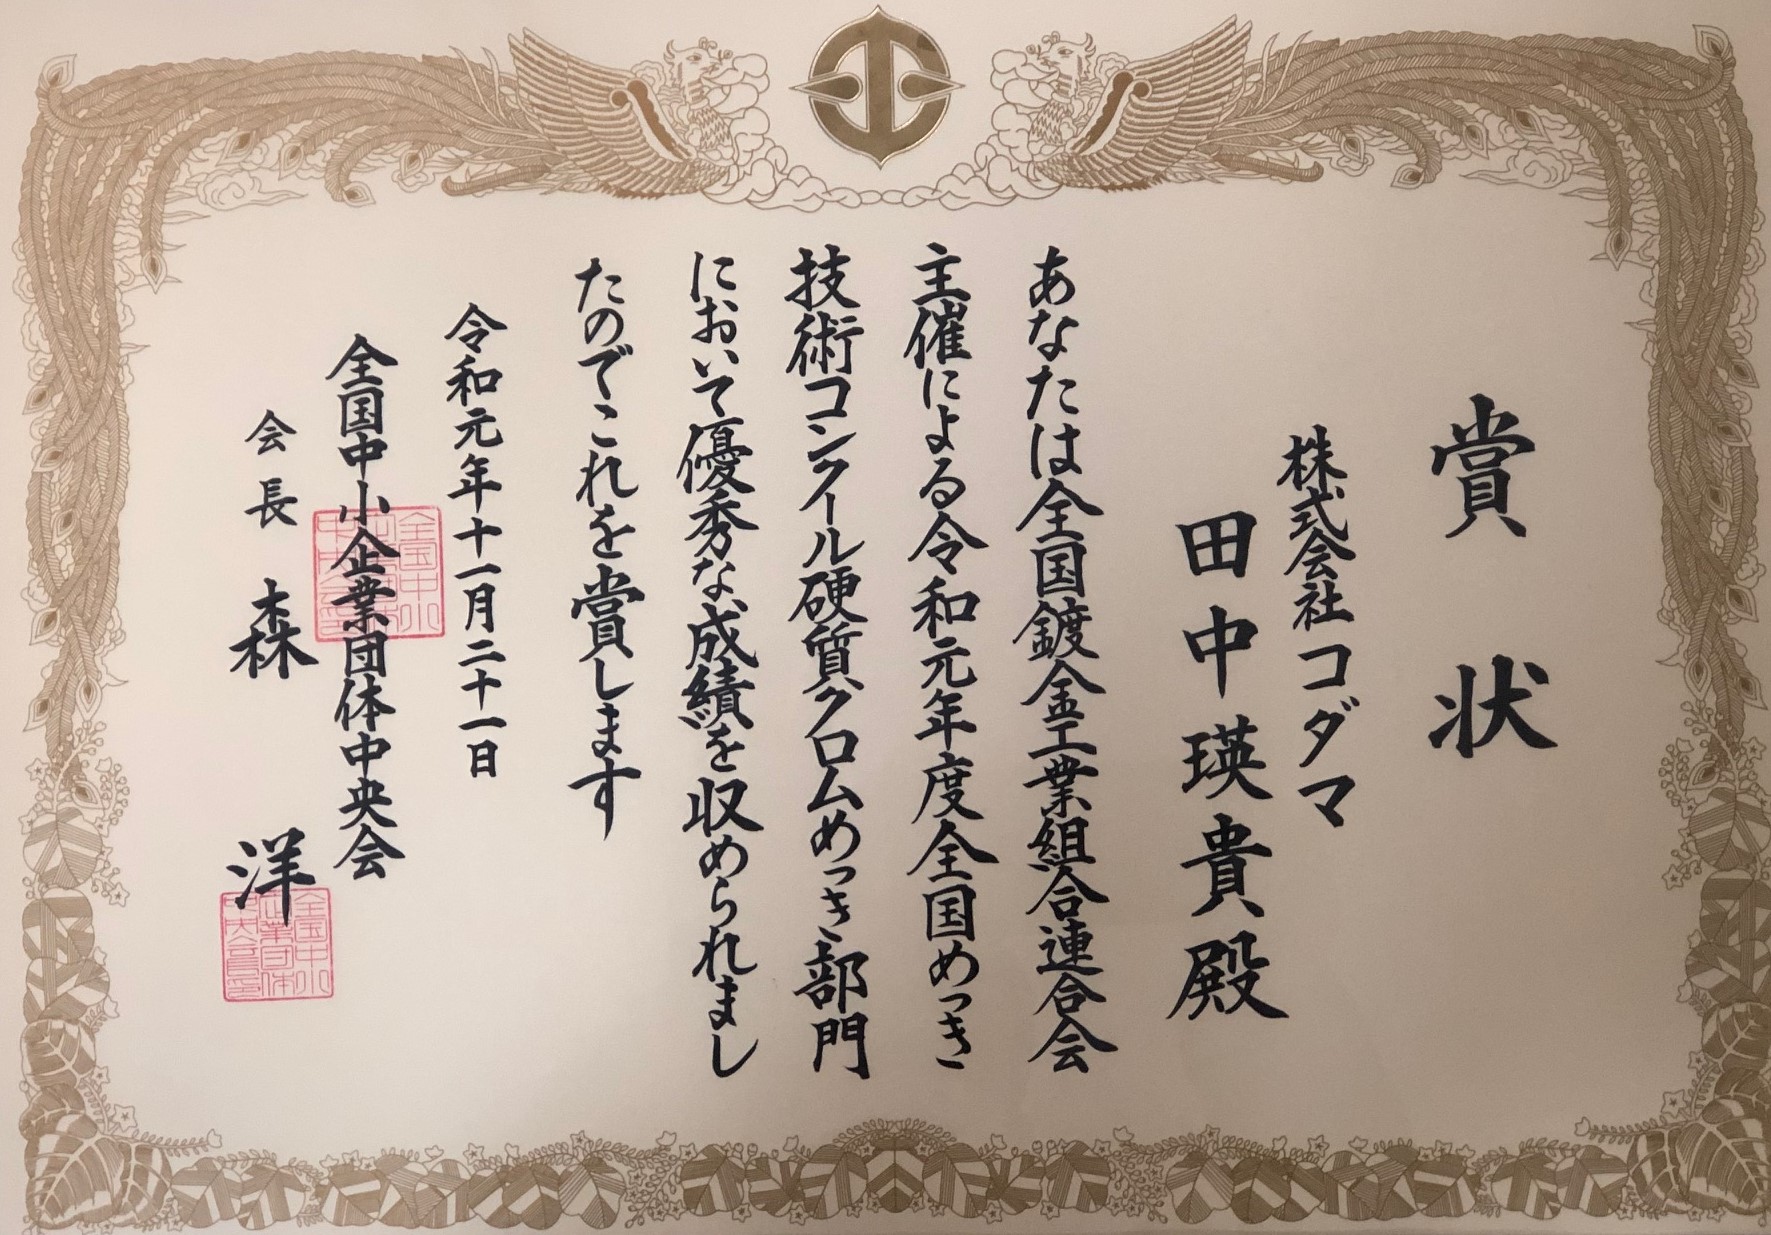 賞状
株式会社コダマ
田中瑛貴殿
あなたは全国鍍金工業組合連合会
主催による令和元年度全国めっき
技術コンクール硬質クロムめっき部門
において優秀な成績を収められまし
たのでこれを賞します
令和元年十一月二十一日
全国中小企業団体中央会
会長 森 洋